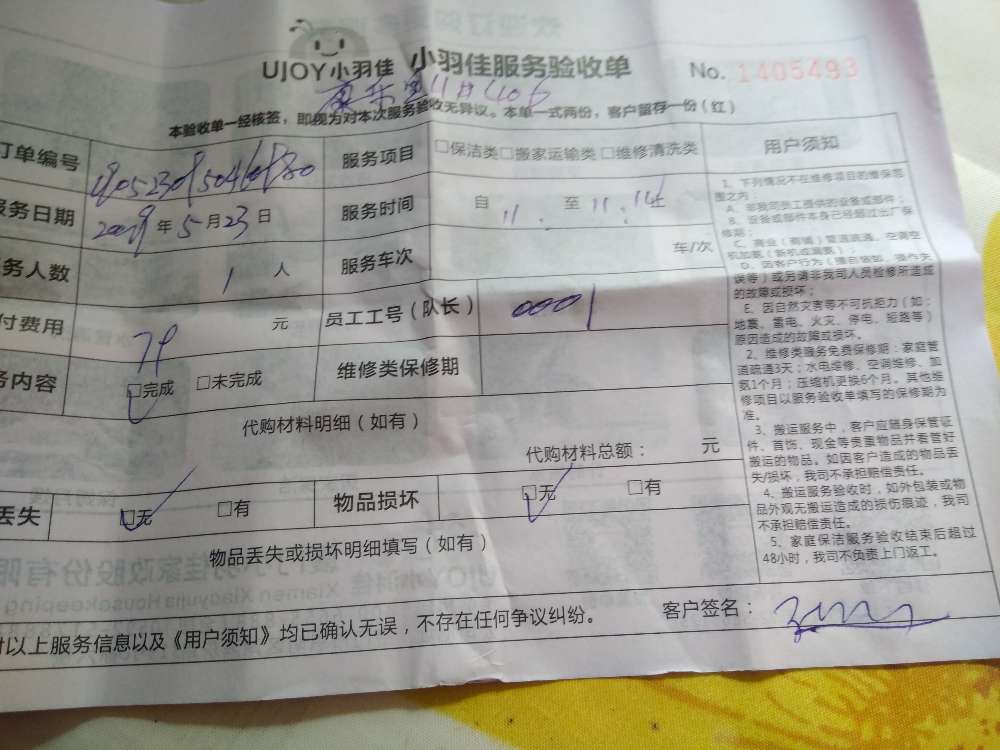 UJOY小羽佳 小羽佳服务验收单 No. 1405493
本验收单一经核签，即视为对本次服务验收无异议。本单一式两份，客户留存一份（红）
订单编号 服务项目 □保洁类□搬家运输类□维修清洗类
服务日期 年5月23日 服务时间 自 11. 至 11.14止
务人数 1 人 服务车次 车/次
付费用 元 员工工号（队长） 0001
务内容 □完成 □未完成 维修类保修期
代购材料明细（如有）
代购材料总额： 元
丢失 □无 □有 物品损坏 □无 □有
物品丢失或损坏明细填写（如有）
对以上服务信息以及《用户须知》均已确认无误，不存在任何争议纠纷。 客户签名：
用户须知
1、下列情况不在维修项目的维保范
围之内：
A、非我司员工提供的设备或部件；
B、设备或部件本身已经超过出厂保
修期；
C、商业（商铺）管道疏通、空调空
机加氨（新机或漏氨）；
误等）或另请非我司人员检修所造成
的故障或损坏；
E、因自然灾害等不可抗拒力（如：
地震、雷电、火灾、停电、短路等）
原因造成的故障或损坏。
2、维修类服务免费保修期：家庭管
道疏通3天；水电维修、空调维修、加
氨1个月；压缩机更换6个月。其他维
修项目以服务验收单填写的保修期为
准。
3、搬运服务中，客户应随身保管证
件、首饰、现金等贵重物品并看管好
搬运的物品。如因客户造成的物品丢
失/损坏，我司不承担赔偿责任。
4、搬运服务验收时，如外包装或物
品外观无搬运造成的损伤痕迹，我司
不承担赔偿责任。
5、家庭保洁服务验收结束后超过
48小时，我司不负责上门返工。